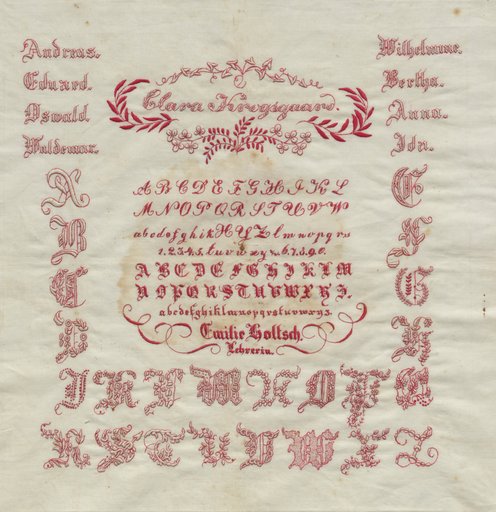 Andreas.
Eduard.
Oswald.
Waldemar.
Wilhelmine.
Bertha.
Anna.
Ida.
Clara Krogsgaard.
A B C D E F G H I K L
M N O P Q R S T U V W
a b c d e f g h i k X Y Z l m n o p q r s
1. 2. 3. 4. 5. t u v w x y z 6. 7. 8. 9. 0.
A B C D E F G H I K L M
N O P Q R S T U V W X Y Z.
a b c d e f g h i k l m n o p q r s t u v w x y z.
Emilie Holtsch.
Lehrerin.
A
B
C
D
E
F
G
H
I K L M N O P Q
R S T U V W X Z